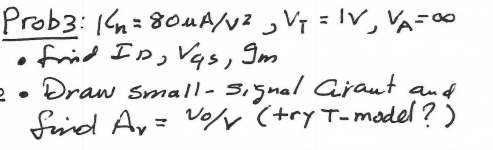 Prob3: Kn = 80uA/V2, VT = 1V, VA = ∞
• find ID, VGS, gm
• Draw small-signal Circuit and
find Av = vo/v (try T-model?)